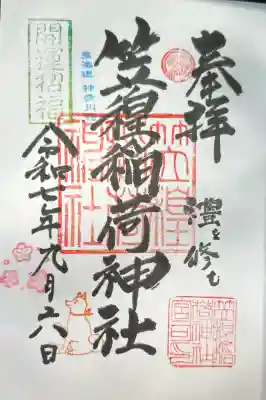 奉拝
禮を修む
笠䅣稲荷神社
東海道 神奈川
開運招福
令和七年九月六日
笠䅣稲荷神社